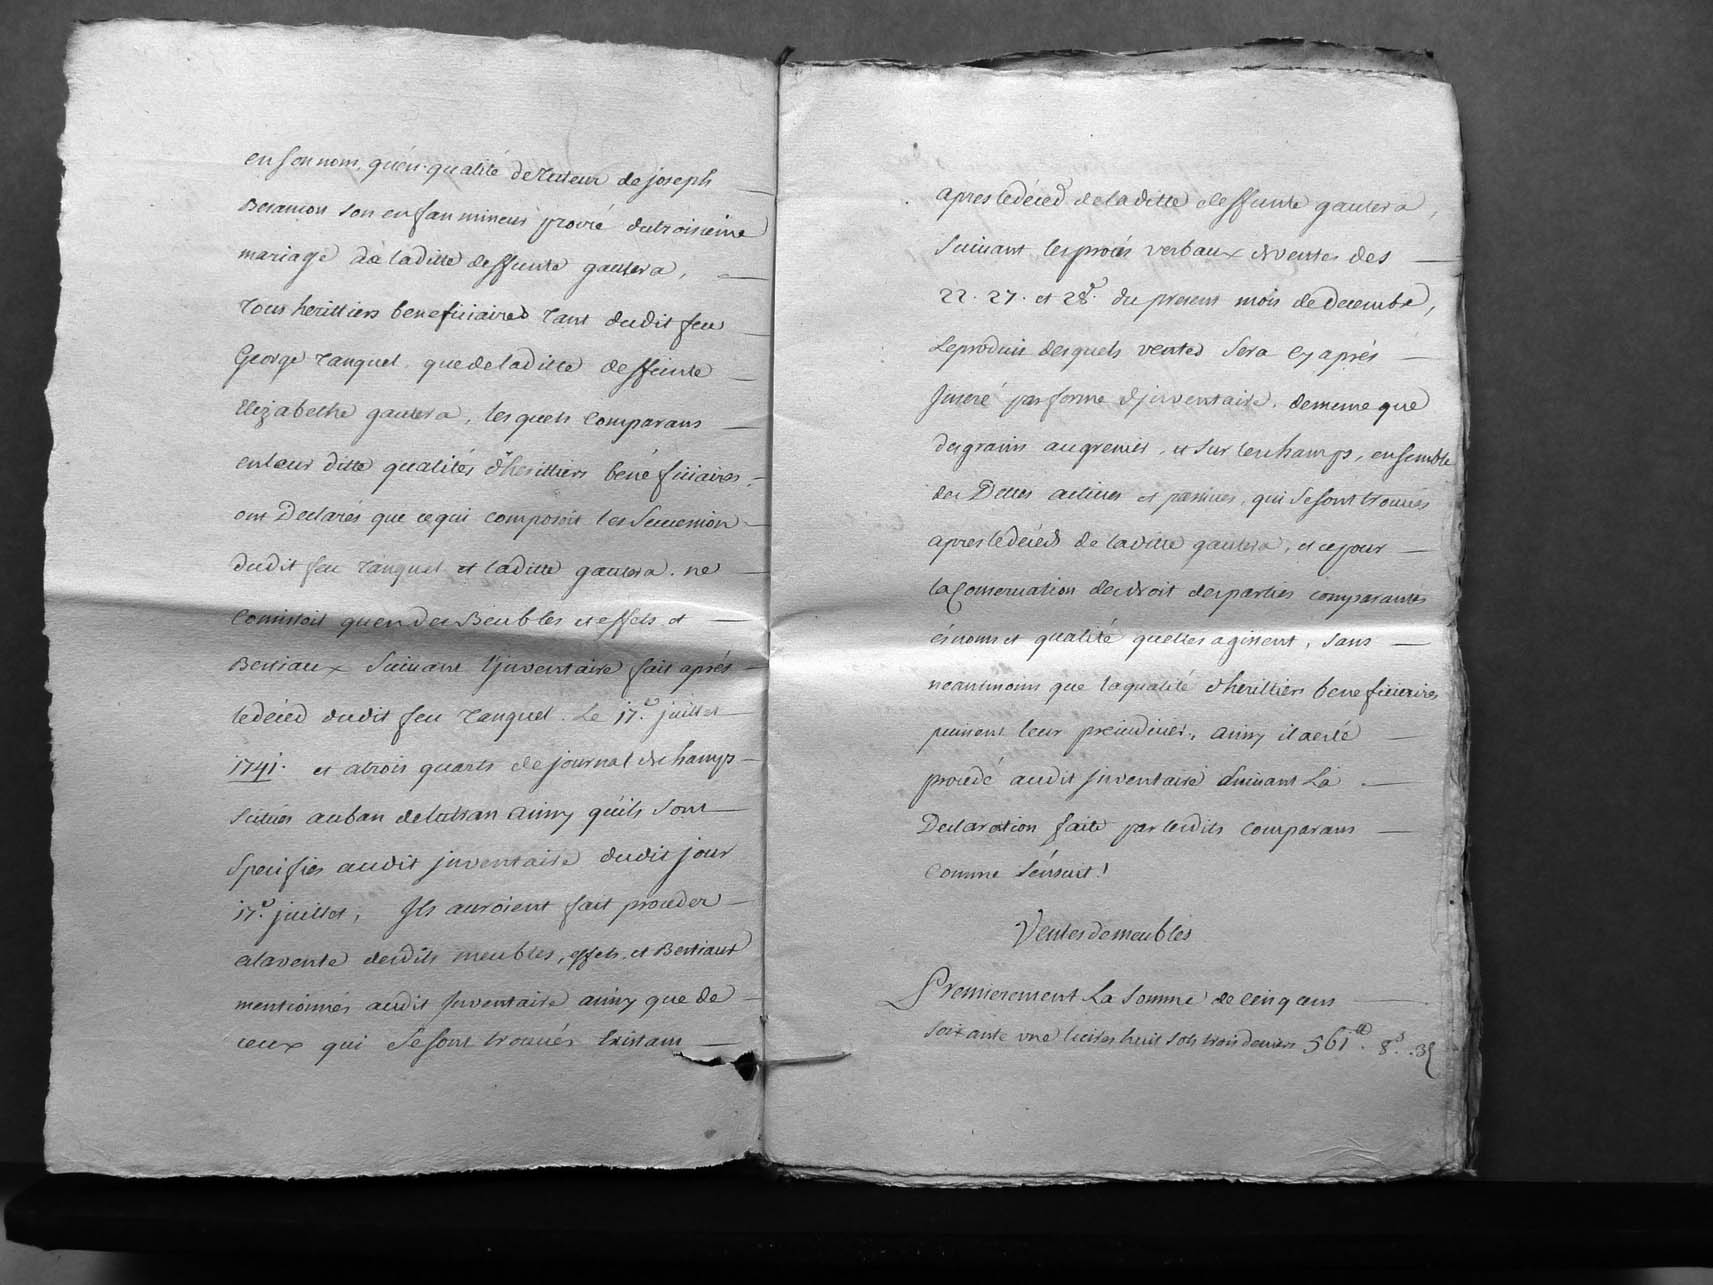 en son nom, qu'en qualité de Tuteur de joseph
Besancon son enfan mineur procréé dutroisieme
mariage de laditte deffunte gautera,
Tous herittiers beneficiaires Tant dudit feu
George Tanguel, que de laditte deffunte
Elizabethe gautera, lesquels Comparans
en leur ditte qualités d'herittiers bénéficiaires,
ont Declarés que ce qui composoit les Succession
dudit feu Tanguel et laditte gautera, ne
Consistoit qu'en des Meubles et effets et
Bestiaux Suivant l'jnventaire fait aprés
ledécéd dudit feu Tanguel. Le 17.e juillet
1741. et atrois quarts de journal de champs
scitués au ban de ainsy qu'ils sont
Specifiés audit jnventaire dudit jour
17.e juillet, Jls auroient fait proceder
alavente desdits meubles, effets et Bestiaux
mentionnés audit Jnventaire ainsy que de
ceux qui Se sont trouvés Existans
apres ledéced de laditte deffunte gautera,
Suivant les procés verbaux de ventes des
22. 27. et 28.e du present mois de Decembre,
Leproduit desquels ventes Sera cy aprés
Jnseré par forme d'jnventaire, de meme que
des grains au grenier, et Sur les champs, ensemble
des Dettes actives et passives, qui Se sont trouvés
apres ledécéd de laditte gautera, et ce pour
la Conservation des droit des parties comparantes
és noms et qualité qu'elles agissent, Sans
neantmoins que la qualité d'herittiers beneficiaires
puissent leur prejudicier, ainsy il a esté
procedé audit Jnventaire Suivant La
Declaration faite par lesdits comparans
Comme S'ensuit!
Ventes de meubles
Premierement La Somme de Cinq cens
Soixante une livres huit Sols trois deniers 561.tt 8.s 3.d